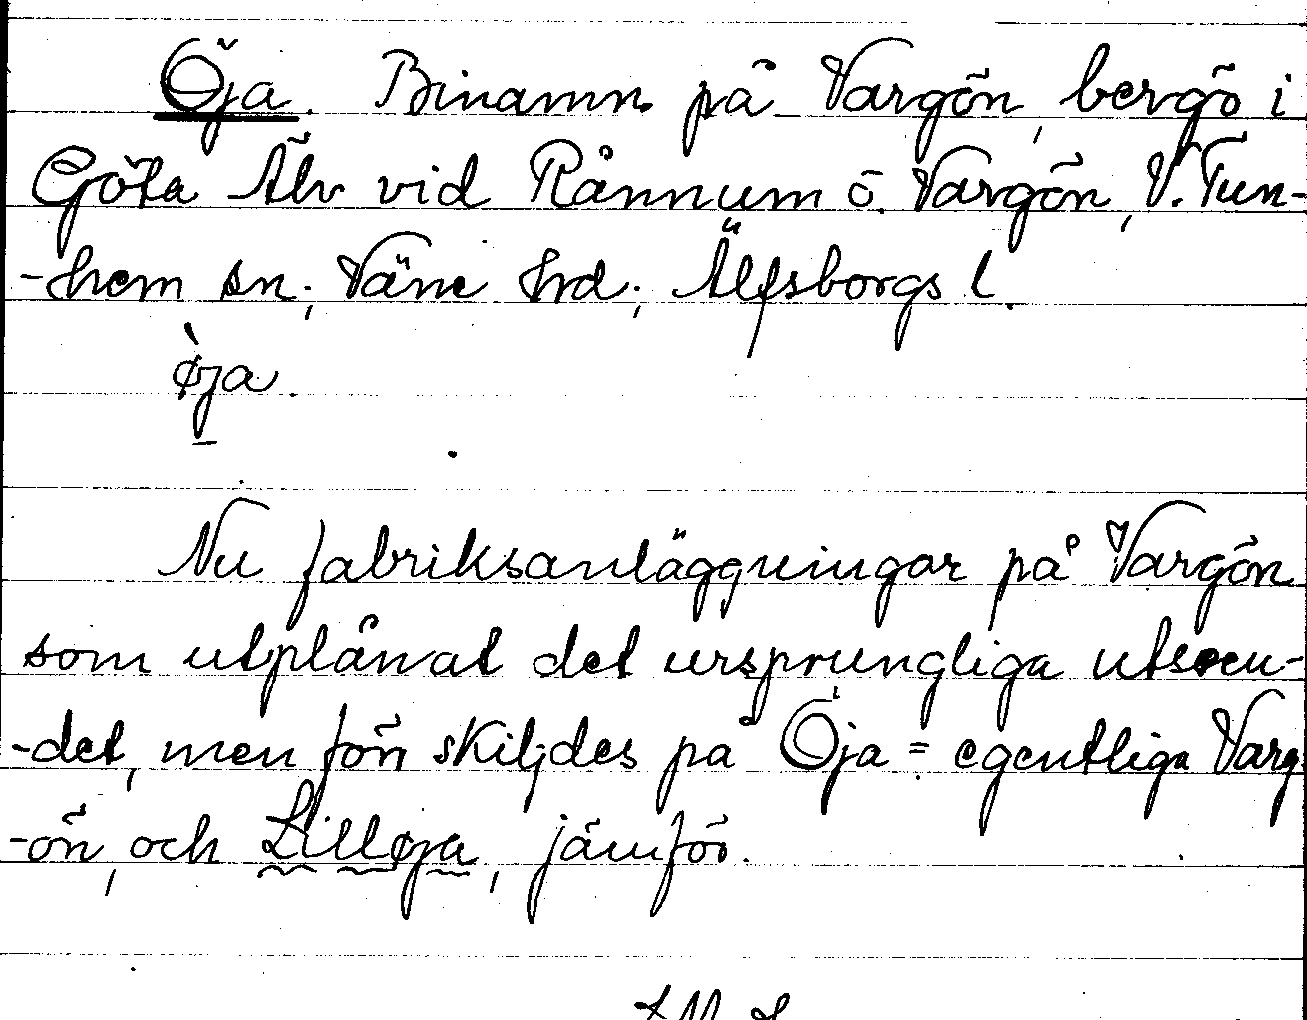 Öja. Binamn på Vargön, bergö i
Göta Älv vid Rånnum o. Vargön, V. Tun-
-hem sn; Väne hrd; Älfsborgs l.
ø̀ja.
Nu fabriksanläggningar på Vargön
som utplånat det ursprungliga utseen-
-det, men förr skiljdes på Öja = egentliga Varg
-ön, och Lilløja, jämför.